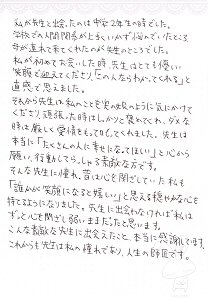 私が先生と出会ったのは中学2年生の時でした。
学校での人間関係が上手くいかず悩んでいたところ
母が連れて来てくれたのが先生のところでした。
私が初めてお会いした時、先生はとても優しい
笑顔で迎えてくださり、「この人ならわかってくれる」と
直感で思えました。
それから先生は私のことを実の娘のように気にかけて
くださり、頑張った時はしっかりと褒めてくれ、ダメな
時は厳しく愛情をもって叱ってくれました。先生は
本当に「たくさんの人に幸せになってほしい」と心から
願い、行動してらっしゃる素敵な方です。
そんな先生に憧れ、昔は心を閉ざしていた私も
「誰かが笑顔になると嬉しい」と思える穏やかな心を
持てるようになりました。先生に出会わなければ私は
ずっと心を閉ざし弱いままだったと思います。
こんな素敵な先生に出会えたこと、本当に感謝してます。
これからも先生は私の憧れであり、人生の師匠です。